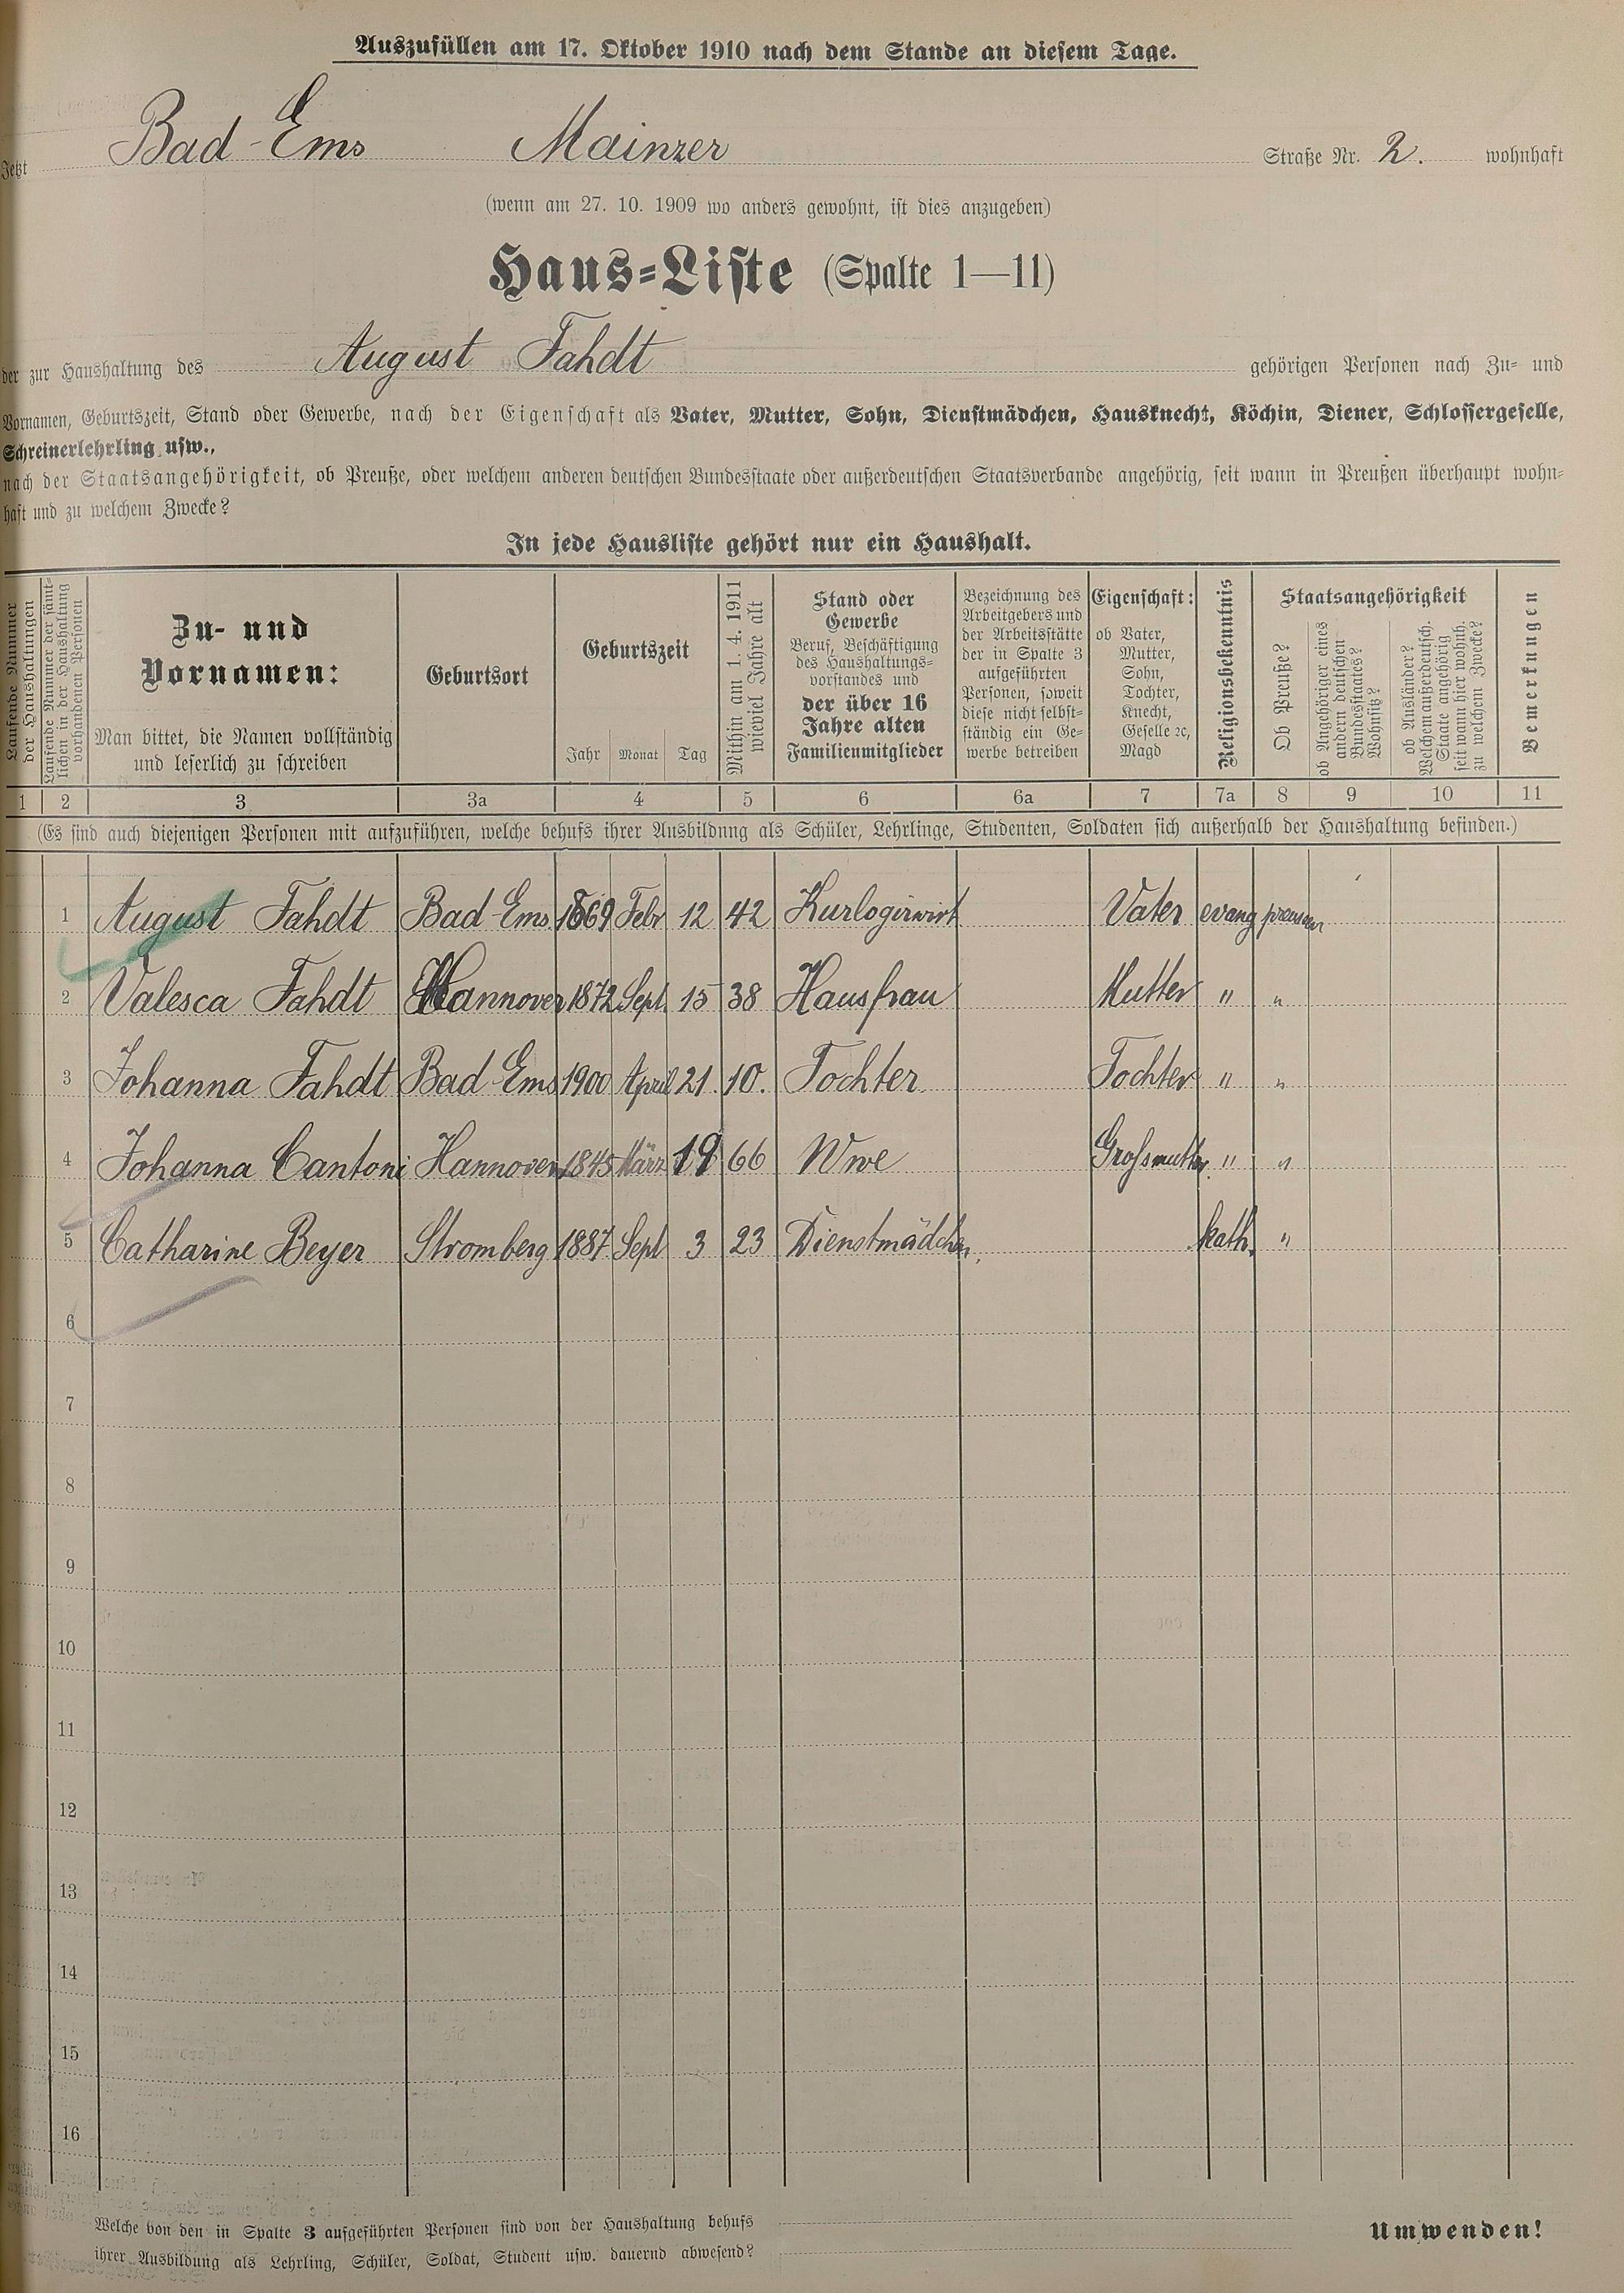 Auszufüllen am 17. Oktober 1910 nach dem Stande an diesem Tage.
Jetzt Bad-Ems Mainzer Straße Nr. 2. wohnhaft
(wenn am 27. 10. 1909 wo anders gewohnt, ist dies anzugeben)
Haus=Liste (Spalte 1—11)
der zur Haushaltung des August Fahdt gehörigen Personen nach Zu= und
Vornamen, Geburtszeit, Stand oder Gewerbe, nach der Eigenschaft als Vater, Mutter, Sohn, Dienstmädchen, Hausknecht, Köchin, Diener, Schlossergeselle,
Schreinerlehrling usw.,
nach der Staatsangehörigkeit, ob Preuße, oder welchem anderen deutschen Bundesstaate oder außerdeutschen Staatsverbande angehörig, seit wann in Preußen überhaupt wohn=
haft und zu welchem Zwecke?
In jede Hausliste gehört nur ein Haushalt.
Laufende Nummer
der Haushaltungen
Laufende Nummer der sämt=
lichen in der Haushaltung
vorhandenen Personen
Zu- und
Vornamen:
Man bittet, die Namen vollständig
und leserlich zu schreiben
Geburtsort
Geburtszeit
Jahr Monat Tag
Mithin am 1. 4. 1911
wieviel Jahre alt
Stand oder
Gewerbe
Beruf, Beschäftigung
des Haushaltungs=
vorstandes und
der über 16
Jahre alten
Familienmitglieder
Bezeichnung des
Arbeitgebers und
der Arbeitsstätte
der in Spalte 3
aufgeführten
Personen, soweit
diese nicht selbst=
ständig ein Ge=
werbe betreiben
Eigenschaft:
ob Vater,
Mutter,
Sohn,
Tochter,
Knecht,
Geselle ꝛc,
Magd
Religionsbekenntnis
Staatsangehörigkeit
Ob Preuße?
ob Angehöriger eines
andern deutschen
Bundesstaates?
Wohnsitz?
ob Ausländer?
Welchem außerdeutsch.
Staate angehörig
seit wann hier wohnh.
zu welchem Zwecke?
Bemerkungen
1 2 3 3a 4 5 6 6a 7 7a 8 9 10 11
(Es sind auch diejenigen Personen mit aufzuführen, welche behufs ihrer Ausbildung als Schüler, Lehrlinge, Studenten, Soldaten sich außerhalb der Haushaltung befinden.)
1 August Fahdt Bad-Ems. 1869 Febr 12 42 Kurlogirwirt Vater evang
2 Valesca Fahdt Hannover 1872 Sept. 15 38 Hausfrau Mutter " "
3 Johanna Fahdt Bad Ems 1900 April 21. 10. Tochter Tochter " "
4 Johanna Cantoni Hannover 1845 März 19 66 Wwe Grossmutter. " "
5 Catharine Beyer Stromberg 1887 Sept 3 23 Dienstmädchen. kath. "
6
7
8
9
10
11
12
13
14
15
16
Welche von den in Spalte 3 aufgeführten Personen sind von der Haushaltung behufs
ihrer Ausbildung als Lehrling, Schüler, Soldat, Student usw. dauernd abwesend?
Umwenden!